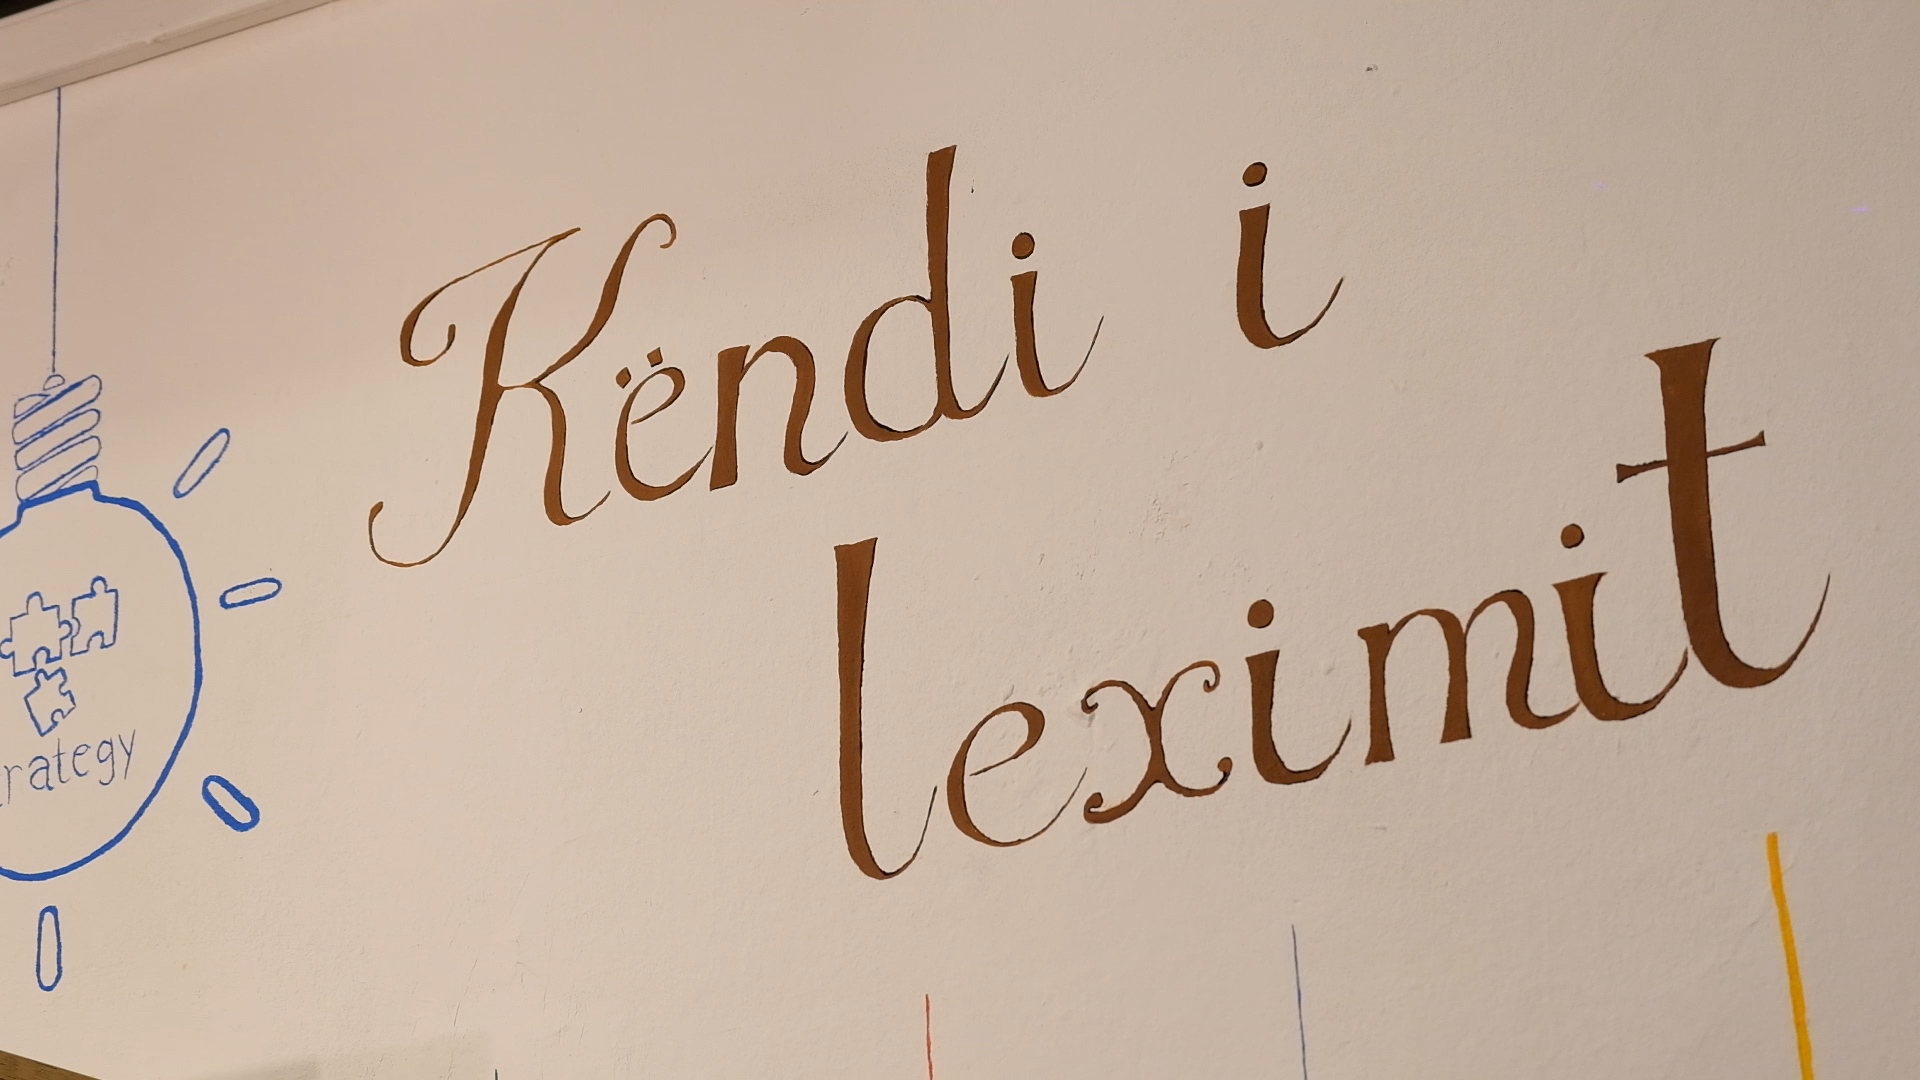 Këndi i
leximit
rategy